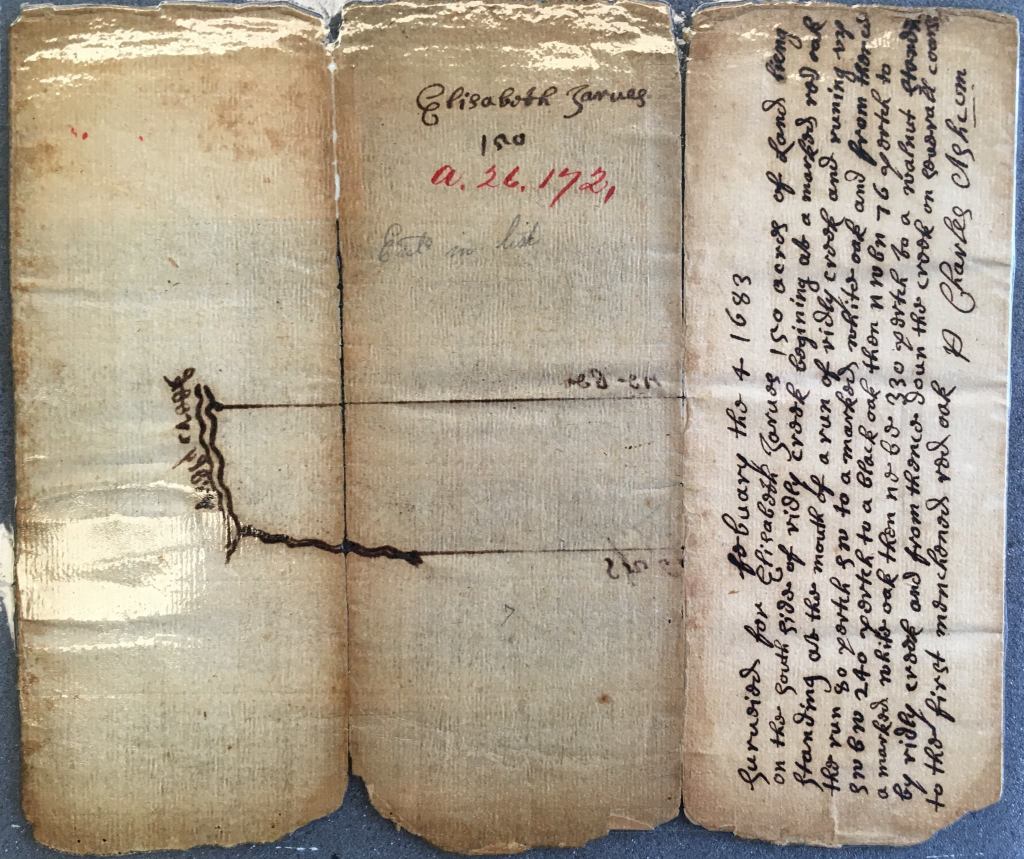 Elisabeth Jarves
150
a. 26. 172,
in list
Survaied for Elisabeth Jarves 150 acres of Land lieing
febuary the 4 1683
on the South side of ridly creek begining at a marked red oak
standing at the mouth of a run of ridly creek and runing up
the run 80 pertch sw to a marked white oak and from thence
swbw 240 pertch to a black oak then nwbn 76 pertch to
a marked white oak then ne be 330 pertch to a walnut standing
by ridly creek and from thence down the creek on severall courses
to the first menchened red oak
P Charles Ashcom